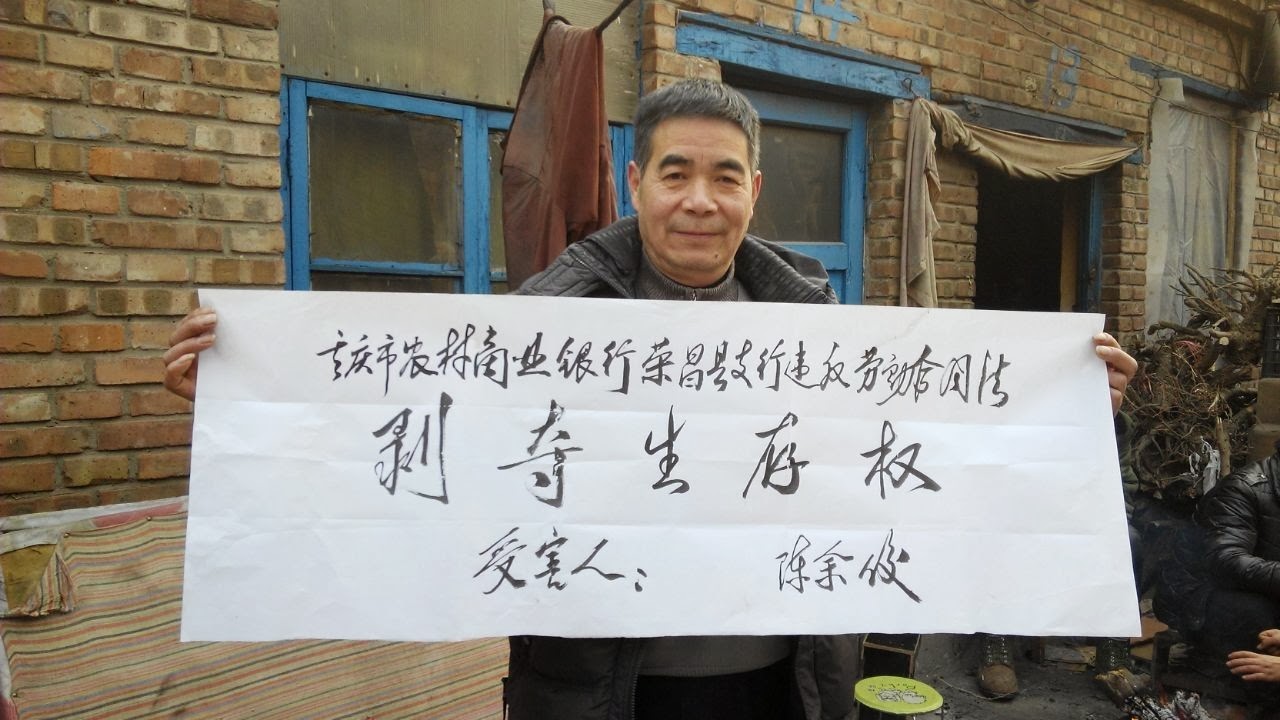 14
13
重庆市农村商业银行荣昌县支行违反劳动合同法
剥夺生存权
受害人: 陈余俊